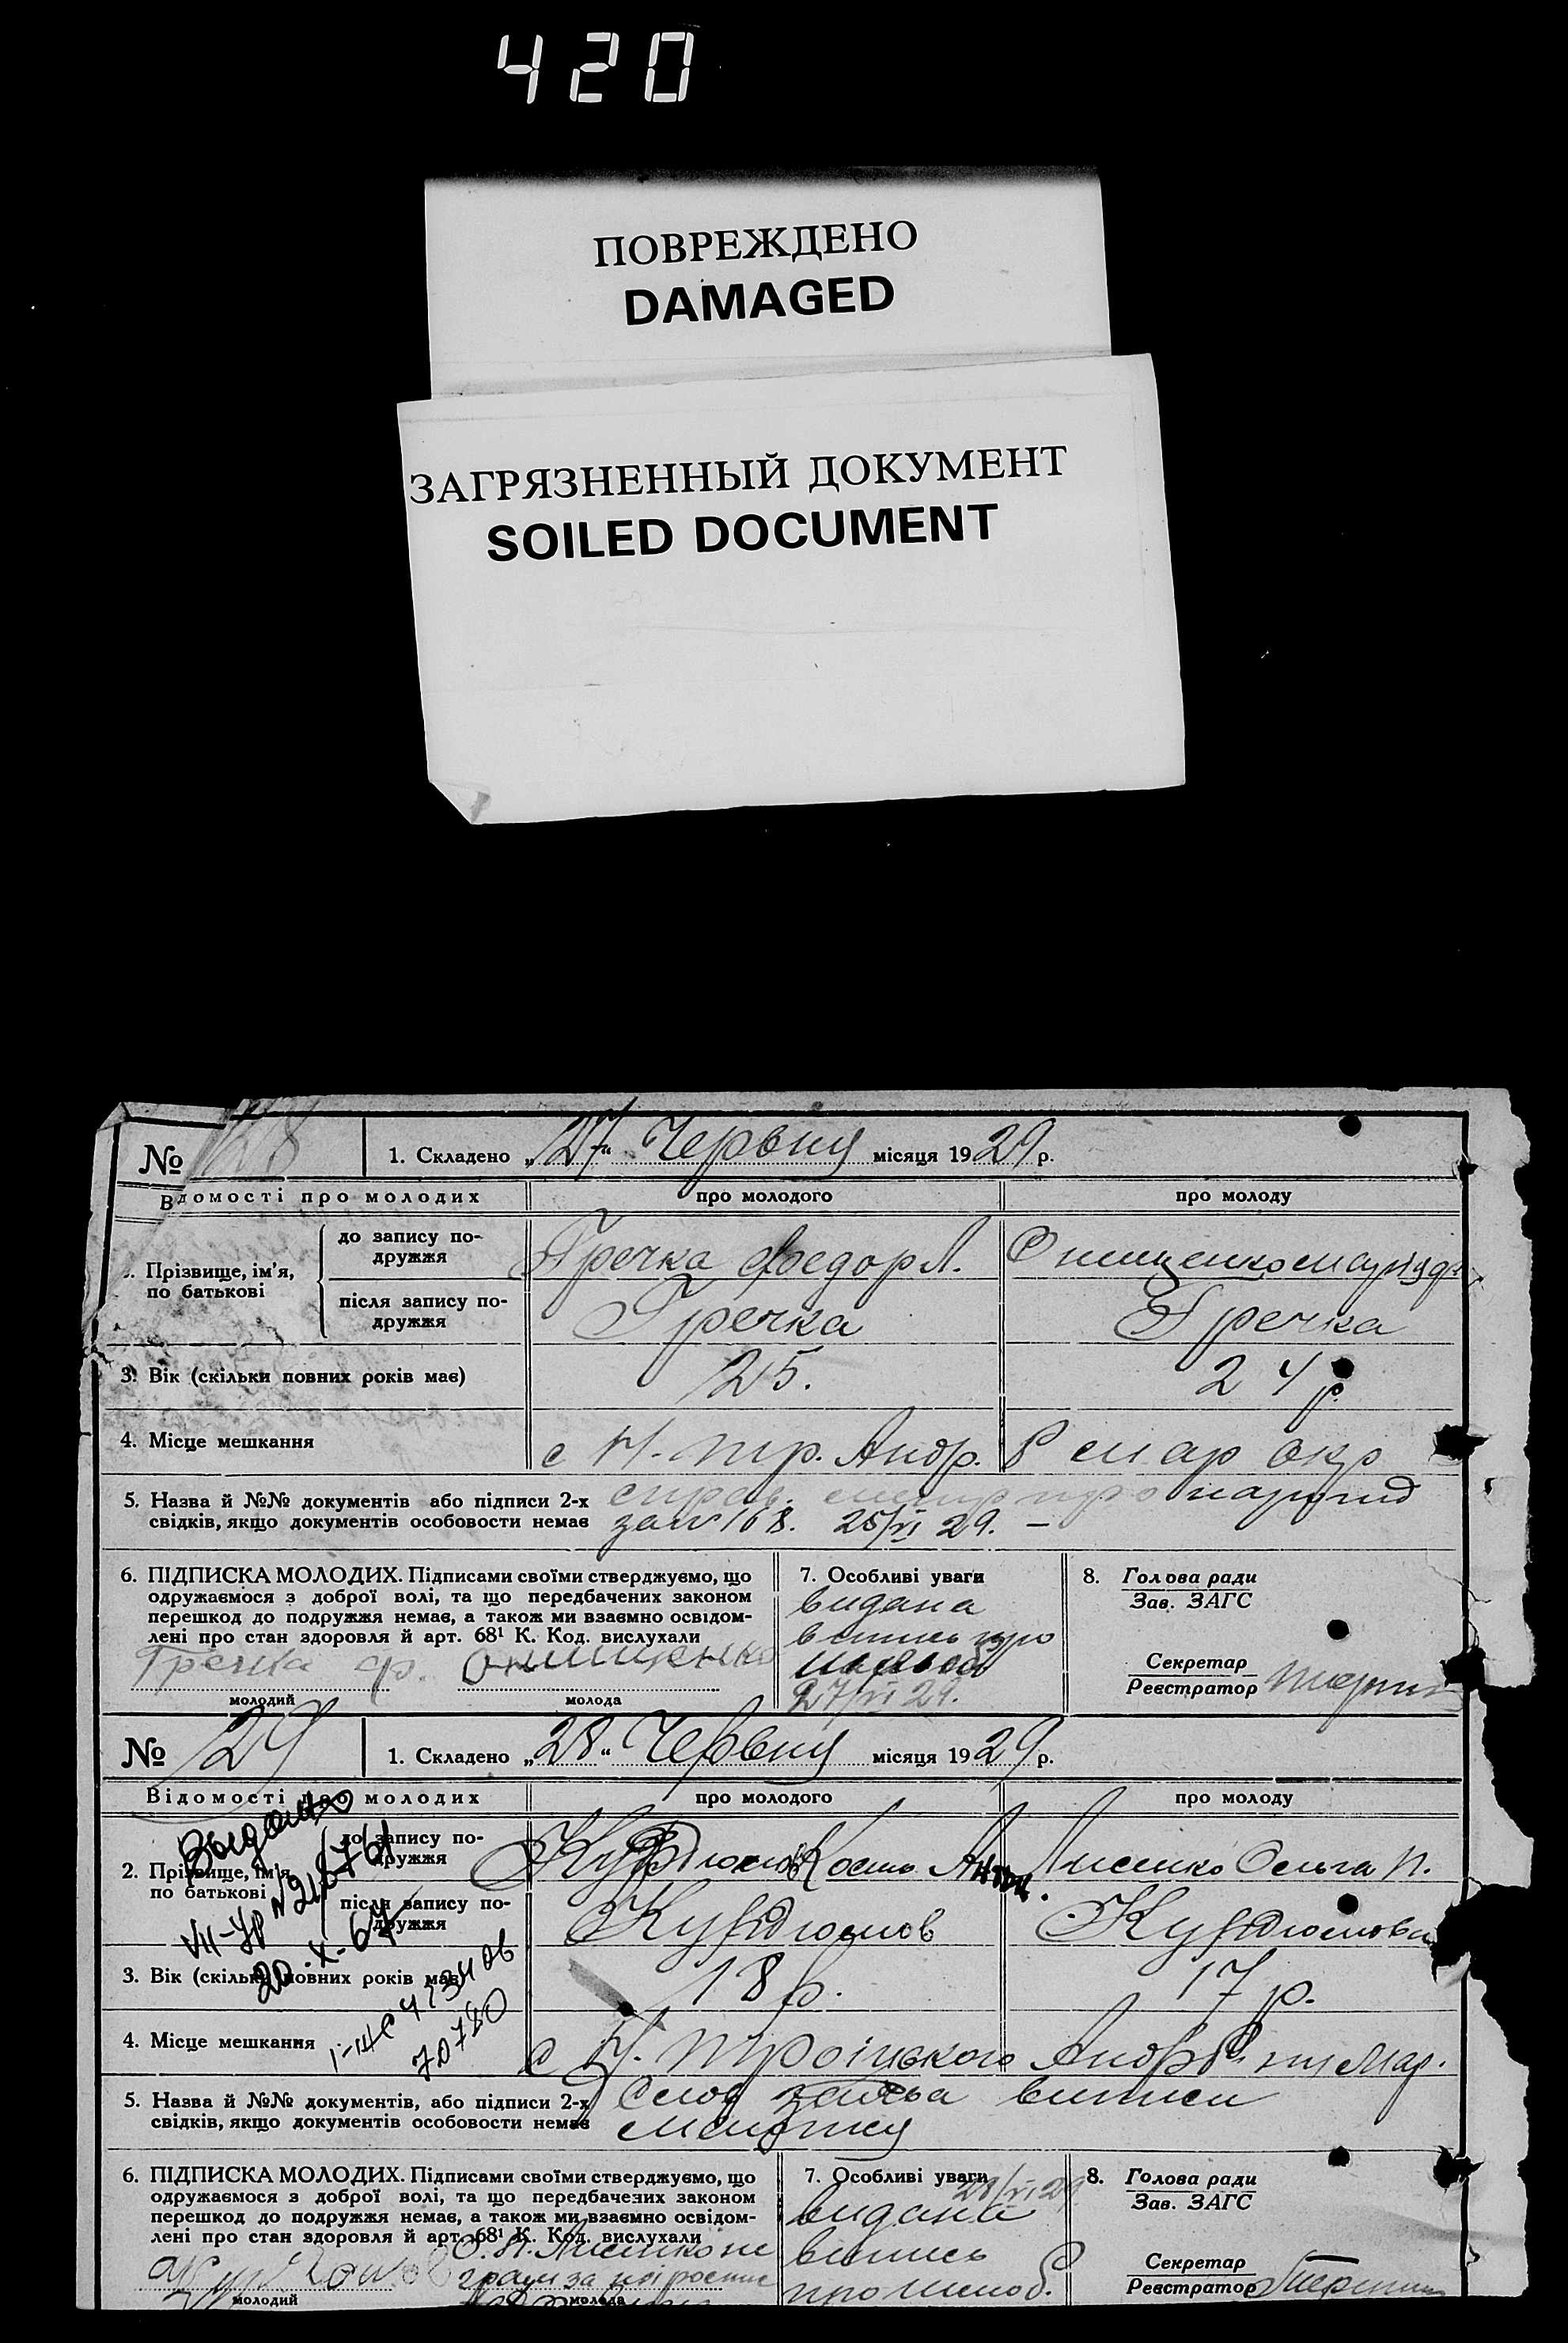 420
ПОВРЕЖДЕНО
DAMAGED
ЗАГРЯЗНЕННЫЙ ДОКУМЕНТ
SOILED DOCUMENT
№ 28 1. Складено „27“ Червня місяця 1929 р.
Відомості про молодих про молодого про молоду
Прізвище, ім'я, по батькові
до запису подружжя Гречка Федор Л. Онищенко
після запису подружжя Гречка Гречка
3. Вік (скільки повних років має) 25. 24 р.
4. Місце мешкання с Н. Тр. Андр. Р Мар окр
5. Назва й №№ документів або підписи 2-х
свідків, якщо документів особовости немає за № 168. 25/VI 29. –
6. ПІДПИСКА МОЛОДИХ. Підписами своїми стверджуємо, що
одружаємося з доброї волі, та що передбачених законом
перешкод до подружжя немає, а також ми взаємно освідом-
лені про стан здоров'я й арт. 68¹ К. Код. вислухали
Гречка Ф. Онищенко
молодий молода
7. Особливі уваги
видана
випись про
шлюб
27/VI 29.
8. Голова ради
Зав. ЗАГС
Секретар
Реєстратор
№ 29 1. Складено „28“ Червня місяця 1929 р.
Відомості про молодих про молодого про молоду
2. Прізвище, ім'я, по батькові
до запису подружжя Курдюмов Кость Антон. Лисенко Ольга П.
після запису подружжя Курдюмов Курдюмова
3. Вік (скільки повних років має) 18 р. 17 р.
4. Місце мешкання с Н. Троіцького Андр Р ну Мар.
20.X-67
70780
5. Назва й №№ документів, або підписи 2-х
свідків, якщо документів особовости немає
6. ПІДПИСКА МОЛОДИХ. Підписами своїми стверджуємо, що
одружаємося з доброї волі, та що передбачених законом
перешкод до подружжя немає, а також ми взаємно освідом-
лені про стан здоров'я й арт. 68¹ К. Код. вислухали
О. П. Лисенко не
грам за неі росписи
молодий молода
7. Особливі уваги
28/VI 29
видана
випись
про шлюб.
8. Голова ради
Зав. ЗАГС
Секретар
Реєстратор